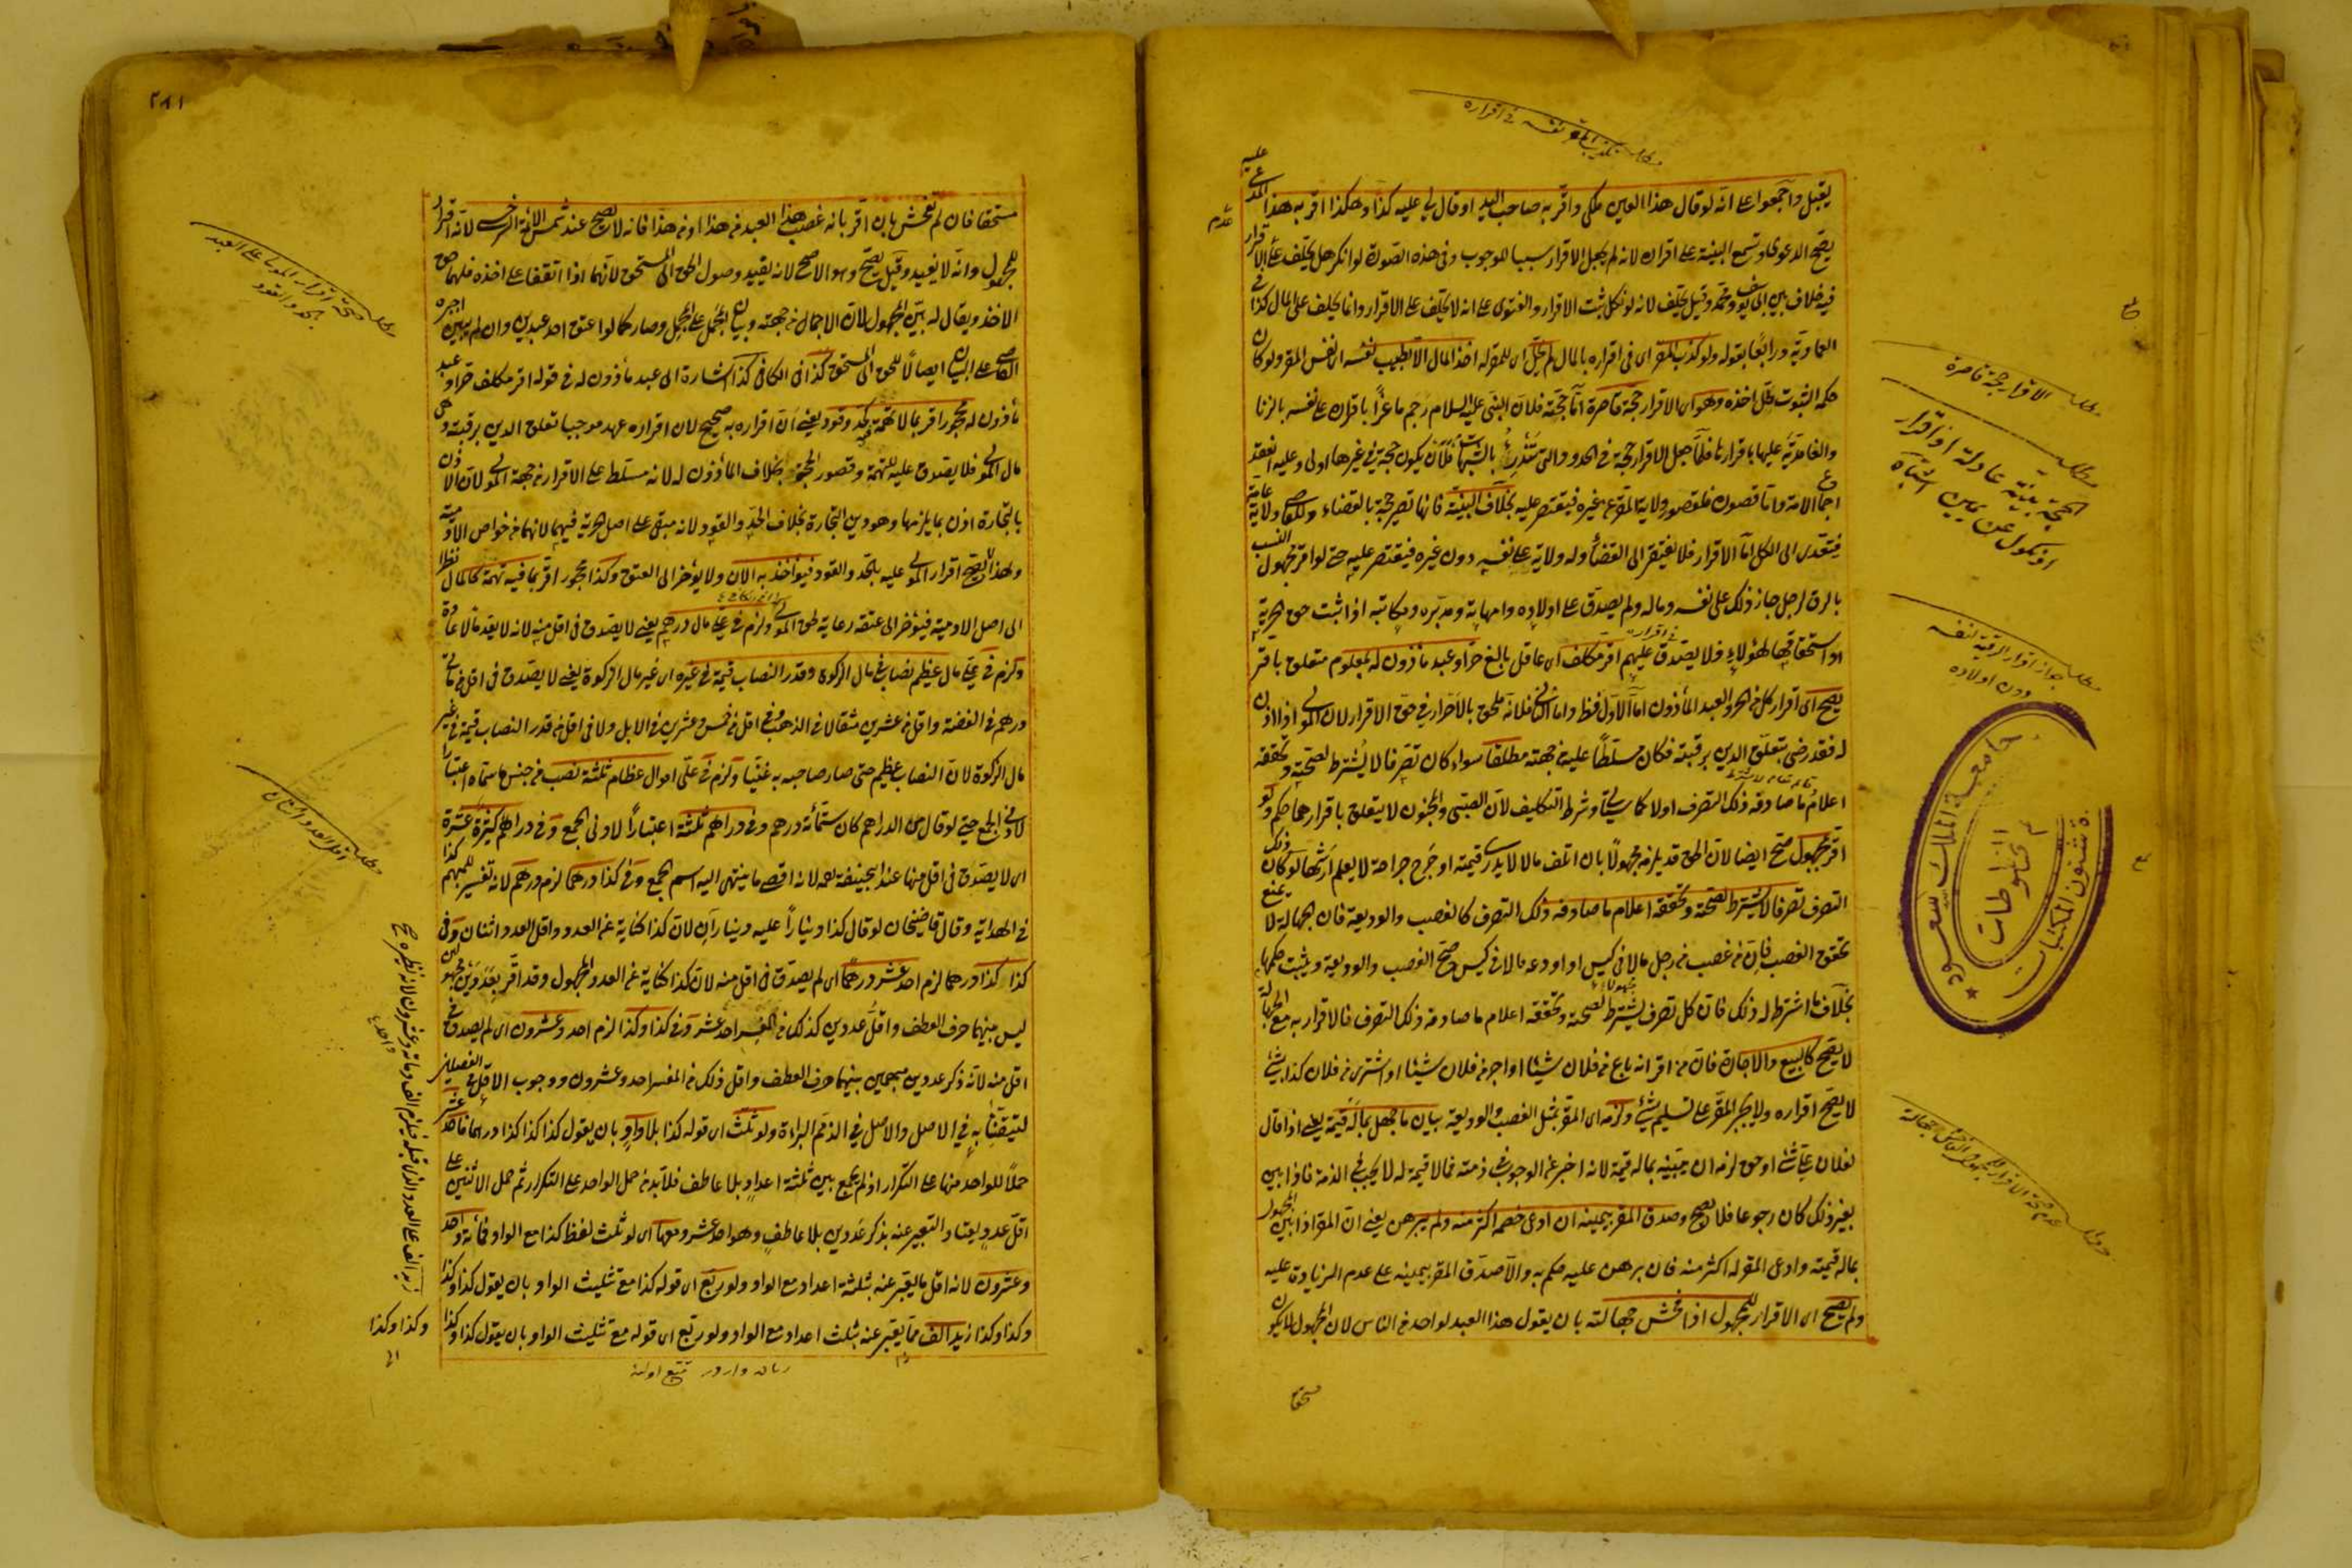 يقبل واجمعوا على انه لو قال هذا العين ملكى واقر به صاحب اليد او قال لى عليه كذا وهكذا اقر به هذا المدعى عليه
يصح الدعوى وتسمع البينة على اقراره لانه لم يجعل الاقرار سببا للوجوب وفى هذه الصورة لو انكر هل يحلف على الاقرار
فيه خلاف بين ابى يوسف ومحمد وقيل يحلف لانه لو نكل ثبت الاقرار والفتوى على انه لا يحلف على الاقرار وانما يحلف على المال كذا فى
العمادية ورابعا بقوله ولو كذب المقر اى فى اقراره بالمال لم يحل اى للمقر له اخذ المال الا بطيب نفسه اى نفس المقر ولو كان
حكمه الثبوت لحل اخذه وهو اى الاقرار حجة قاصرة اما حجته فلان النبى عليه السلام رجم ماعزا باقراره على نفسه بالزنا
والغامدية عليها باقرارها فلما جعل الاقرار حجة فى الحدود التى تندرئ بالشبهات فلان يكون حجة فى غيرها اولى وعليه انعقد
اجماع الامة واما قصوره فلقصور ولاية المقر عن غيره فيقتصر عليه بخلاف البينة فانها تصير حجة بالقضاء وللقاضى ولاية عامة
فيتعدى الى الكل اما الاقرار فلا يفتقر الى القضاء وله ولاية على نفسه دون غيره فيقتصر عليه حتى لو اقر مجهول النسب
بالرق لرجل جاز ذلك على نفسه وماله ولم يصدق على اولاده وامهاته ومدبره ومكاتبه اذا ثبت حق الحرية
او استحقاقها لهؤلاء فلا يصدق عليهم اقر مكلف اى عاقل بالغ حر او عبد مأذون له بمعلوم متعلق باقر
يصح اى اقرار كل من الحر والعبد المأذون اما الاول فظ واما الثانى فلانه ملحق بالاحرار فى حق الاقرار لان المولى اذا اذن
له فقد رضى بتعلق الدين برقبته فكان مسلطا عليه من جهته مطلقا سواء كان تصرفا لا يشترط لصحته وتحققه
اعلام ما صادفه ذلك التصرف اولا كما سيأتى وشرط التكليف لان الصبى والمجنون لا يتعلق باقرارهما حكم ولو
اقر بمجهول صح ايضا لان الحق قد يلزمه مجهولا بان اتلف مالا لا يدرى قيمته او جرح جراحة لا يعلم ارشها لو كان ذلك
التصرف تصرفا لا يشترط لصحته وتحققه اعلام ما صادفه ذلك التصرف كالغصب والوديعة فان الجهالة لا يمنع
تحقق الغصب فان من غصب من رجل مالا فى كيس او اودعه مالا فى كيس صح الغصب والوديعة ويثبت حكمها
بخلاف ما اشترط له ذلك فان كل تصرف يشترط لصحته وتحققه اعلام ما صادفه ذلك التصرف فالاقرار به مع الجهالة
لا يصح كالبيع والاجارة فان من اقر انه باع من فلان شيئا او اجر من فلان شيئا او اشترى من فلان كذا بشئ
لا يصح اقراره ولا يجبر المقر على تسليم شئ ولزمه اى المقر بمثل الغصب والوديعة بيان ما جهل بما له قيمة يعنى اذا قال
لفلان على شئ او حق لزمه ان يبينه بما له قيمة لانه اخبر عن الوجوب فى ذمته فما لا قيمة له لا يجب فى الذمة فاذا بين
بغير ذلك كان رجوعا فلا يصح وصدق المقر بيمينه ان ادعى خصمه اكثر منه ولم يبرهن يعنى ان المقر اذا بين المجهول
بما له قيمته وادعى المقر له اكثر منه فان برهن عليه حكم به والا صدق المقر بيمينه على عدم الزيادة عليه
ولم يصح اى الاقرار للمجهول اذا فحش جهالته بان يقول هذا العبد لواحد من الناس لان المجهول لا يكون
مستحقا
الاقرار حجة قاصرة
الحجة بينة عادلة او اقرار
او نكول عن يمين
جواز اقرار الرقية لنفسه
دون اولاده
جامعة الملك سعود
شئون المكتبات
قسم المخطوطات
٢٨١
مستحقا فان لم يفحش بان اقر بانه غصب هذا العبد من هذا او من هذا فانه لا يصح عند شمس الائمة السرخسى لانه اقرار
للمجهول وانه لا يفيد وقيل يصح وهو الاصح لانه يفيد وصول الحق الى المستحق لانهما اذا اتفقا على اخذه فلهما حق
الاخذ ويقال له بين المجهول لان الاجمال من جهته وبيان المجمل على المجمل وصار كما لو اعتق احد عبدين وان لم يبين اجبره
القاضى على البيان ايصالا للحق الى المستحق كذا فى الكافى كذا اشارة الى عبد مأذون له فى قوله اقر مكلف حر او عبد
مأذون له محجور اقر بما لا تهمة فيه كحد وقود يعنى ان اقراره به صحيح لان اقراره عهد موجبا تعلق الدين برقبته وهى
مال المولى فلا يصدق عليه للتهمة وقصور الحجة بخلاف المأذون له لانه مسلط على الاقرار من جهة المولى لان الاذن
بالتجارة اذن بما يلزمها وهو دين التجارة بخلاف الحد والقود لانه مبقى على اصل الحرية فيهما لانهما من خواص الآدمية
ولهذا لا يصح اقرار المولى عليه بالحد والقود فيؤاخذ به الآن ولا يؤخر الى العتق وكذا محجور اقر بما فيه تهمة كالمال نظرا
الى اصل الآدمية فيؤخر الى عتقه رعاية لحق المولى ولزم فى على مال درهم يعنى لا يصدق فى اقل منه لانه لا يعد مالا عادة
ولزم فى على مال عظيم نصاب فى مال الزكوة وقدر النصاب قيمة فى غيره اى غير مال الزكوة يعنى لا يصدق فى اقل من مأتى
درهم فى الفضة واقل من عشرين مثقالا فى الذهب وفى اقل من خمس وعشرين فى الابل ولا فى اقل من قدر النصاب قيمة فى غير
مال الزكوة لان النصاب عظيم حتى صار صاحبه به غنيا ولزم فى على اموال عظام ثلثة نصب من جنس ما سماه اعتبارا
لادنى الجمع حتى لو قال من الدراهم كان ستمائة درهم وفى دراهم ثلثة اعتبارا لادنى الجمع وفى دراهم كثيرة عشرة
اى لا يصدق فى اقل منها عند ابى حنيفة رحمه لانه اقصى ما ينتهى اليه اسم الجمع وفى كذا درهما لزم درهم لانه تفسير للمبهم كذا
فى الهداية وقال قاضيخان لو قال كذا دينارا عليه ديناران لان كذا كناية عن العدد واقل العدد اثنان وفى
كذا كذا درهما لزم احد عشر درهما اى لم يصدق فى اقل منه لان كذا كناية عن العدد المجهول وقد اقر بعددين مجهولين
ليس بينهما حرف العطف واقل عددين كذلك من المفسر احد عشر وفى كذا وكذا لزم احد وعشرون اى لم يصدق فى
اقل منه لانه ذكر عددين مبهمين بينهما حرف العطف واقل ذلك من المفسر احد وعشرون ووجوب الاقل فى الفصلين
لتيقنا به فى الاصل والاصل فى الذمم البراءة ولو ثلث اى قوله كذا بلا واو بان يقول كذا كذا كذا درهما فاحد عشر
حملا للواحد منها على التكرار اذ لم يجمع بين ثلثة اعداد بلا عاطف فلا بد من حمل الواحد على التكرار ثم حمل الاثنين على
اقل عدد يعتاد التعبير عنه بذكر عددين بلا عاطف وهو احد عشر ومعها اى لو ثلث لفظ كذا مع الواو فمائة واحد
وعشرون لانه اقل ما يعبر عنه بثلثة اعداد مع الواو ولو ربع اى قوله كذا مع تثليث الواو بان يقول كذا وكذا
وكذا وكذا زيد الف مما يعبر عنه بثلث اعداد مع الواو ولو ربع اى قوله مع تثليث الواو بان يقول كذا وكذا
وكذا وكذا
صحة اقرار المولى على العبد
بحد والقود
اقل العدد اثنان
زيد الف على العدد الذى قبله فيلزم الف ومائة وعشرون لانه نظيره صح